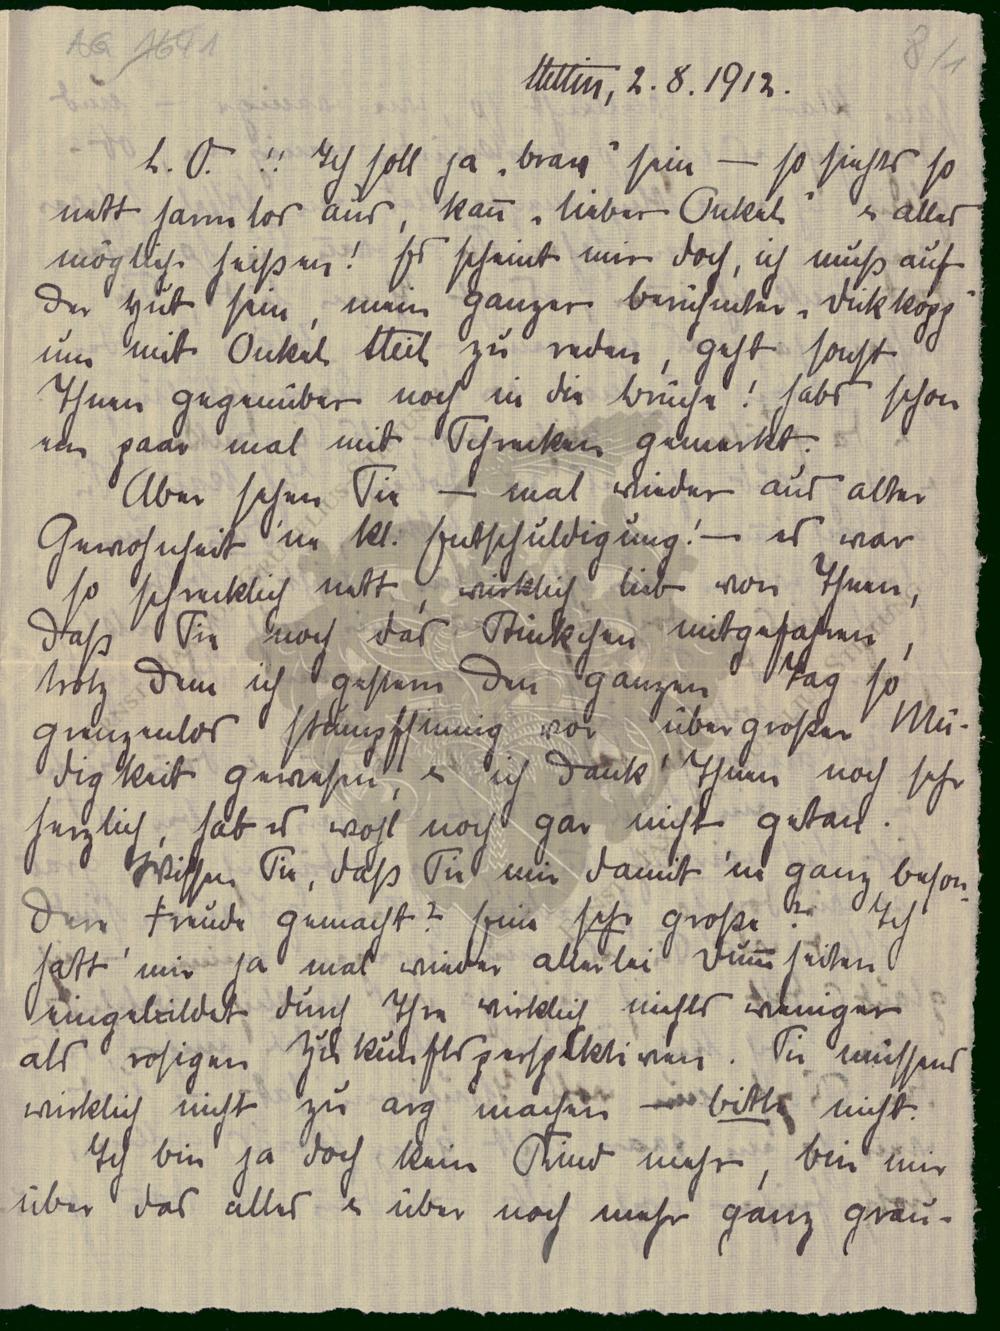 AG 1691
8/1
Stettin, 2. 8. 1912.
L. O. !! Ich soll ja „brav“ sein — so siehts so
nett harmlos aus, kañ „lieber Onkel“ & alles
mögliche heißen! Es scheint mir doch, ich muß auf
der Hut sein, mein ganzer berühmter „Dickkopp“
um mit Onkel Steil zu reden, geht sonst
Ihnen gegenüber noch in die Brüche! Habs schon
ein paar mal mit Schrecken gemerkt.
Aber sehen Sie — mal wieder aus alter
Gewohnheit 'ne kl. Entschuldigung! — es war
so schrecklich nett, wirklich lieb von Ihnen,
daß Sie noch das Stückchen mitgefahren,
trotz dem ich gestern den ganzen Tag so
grenzenlos stumpfsinnig vor übergroßer Mü-
digkeit gewesen, & ich dank' Ihnen noch sehr
herzlich, hab es wohl noch gar nicht getan.
Wissen Sie, daß Sie mir damit 'ne ganz beson-
dere Freude gemacht? Eine sehr große? Ich
hatt' mir ja mal wieder allerlei Dum̄heiten
eingebildet durch Ihre wirklich nichts weniger
als rosigen Zukunftsperspektiven. Sie müssens
wirklich nicht zu arg machen — bitte nicht.
Ich bin ja doch kein Kind mehr, bin mir
über das alles & über noch mehr ganz grau-